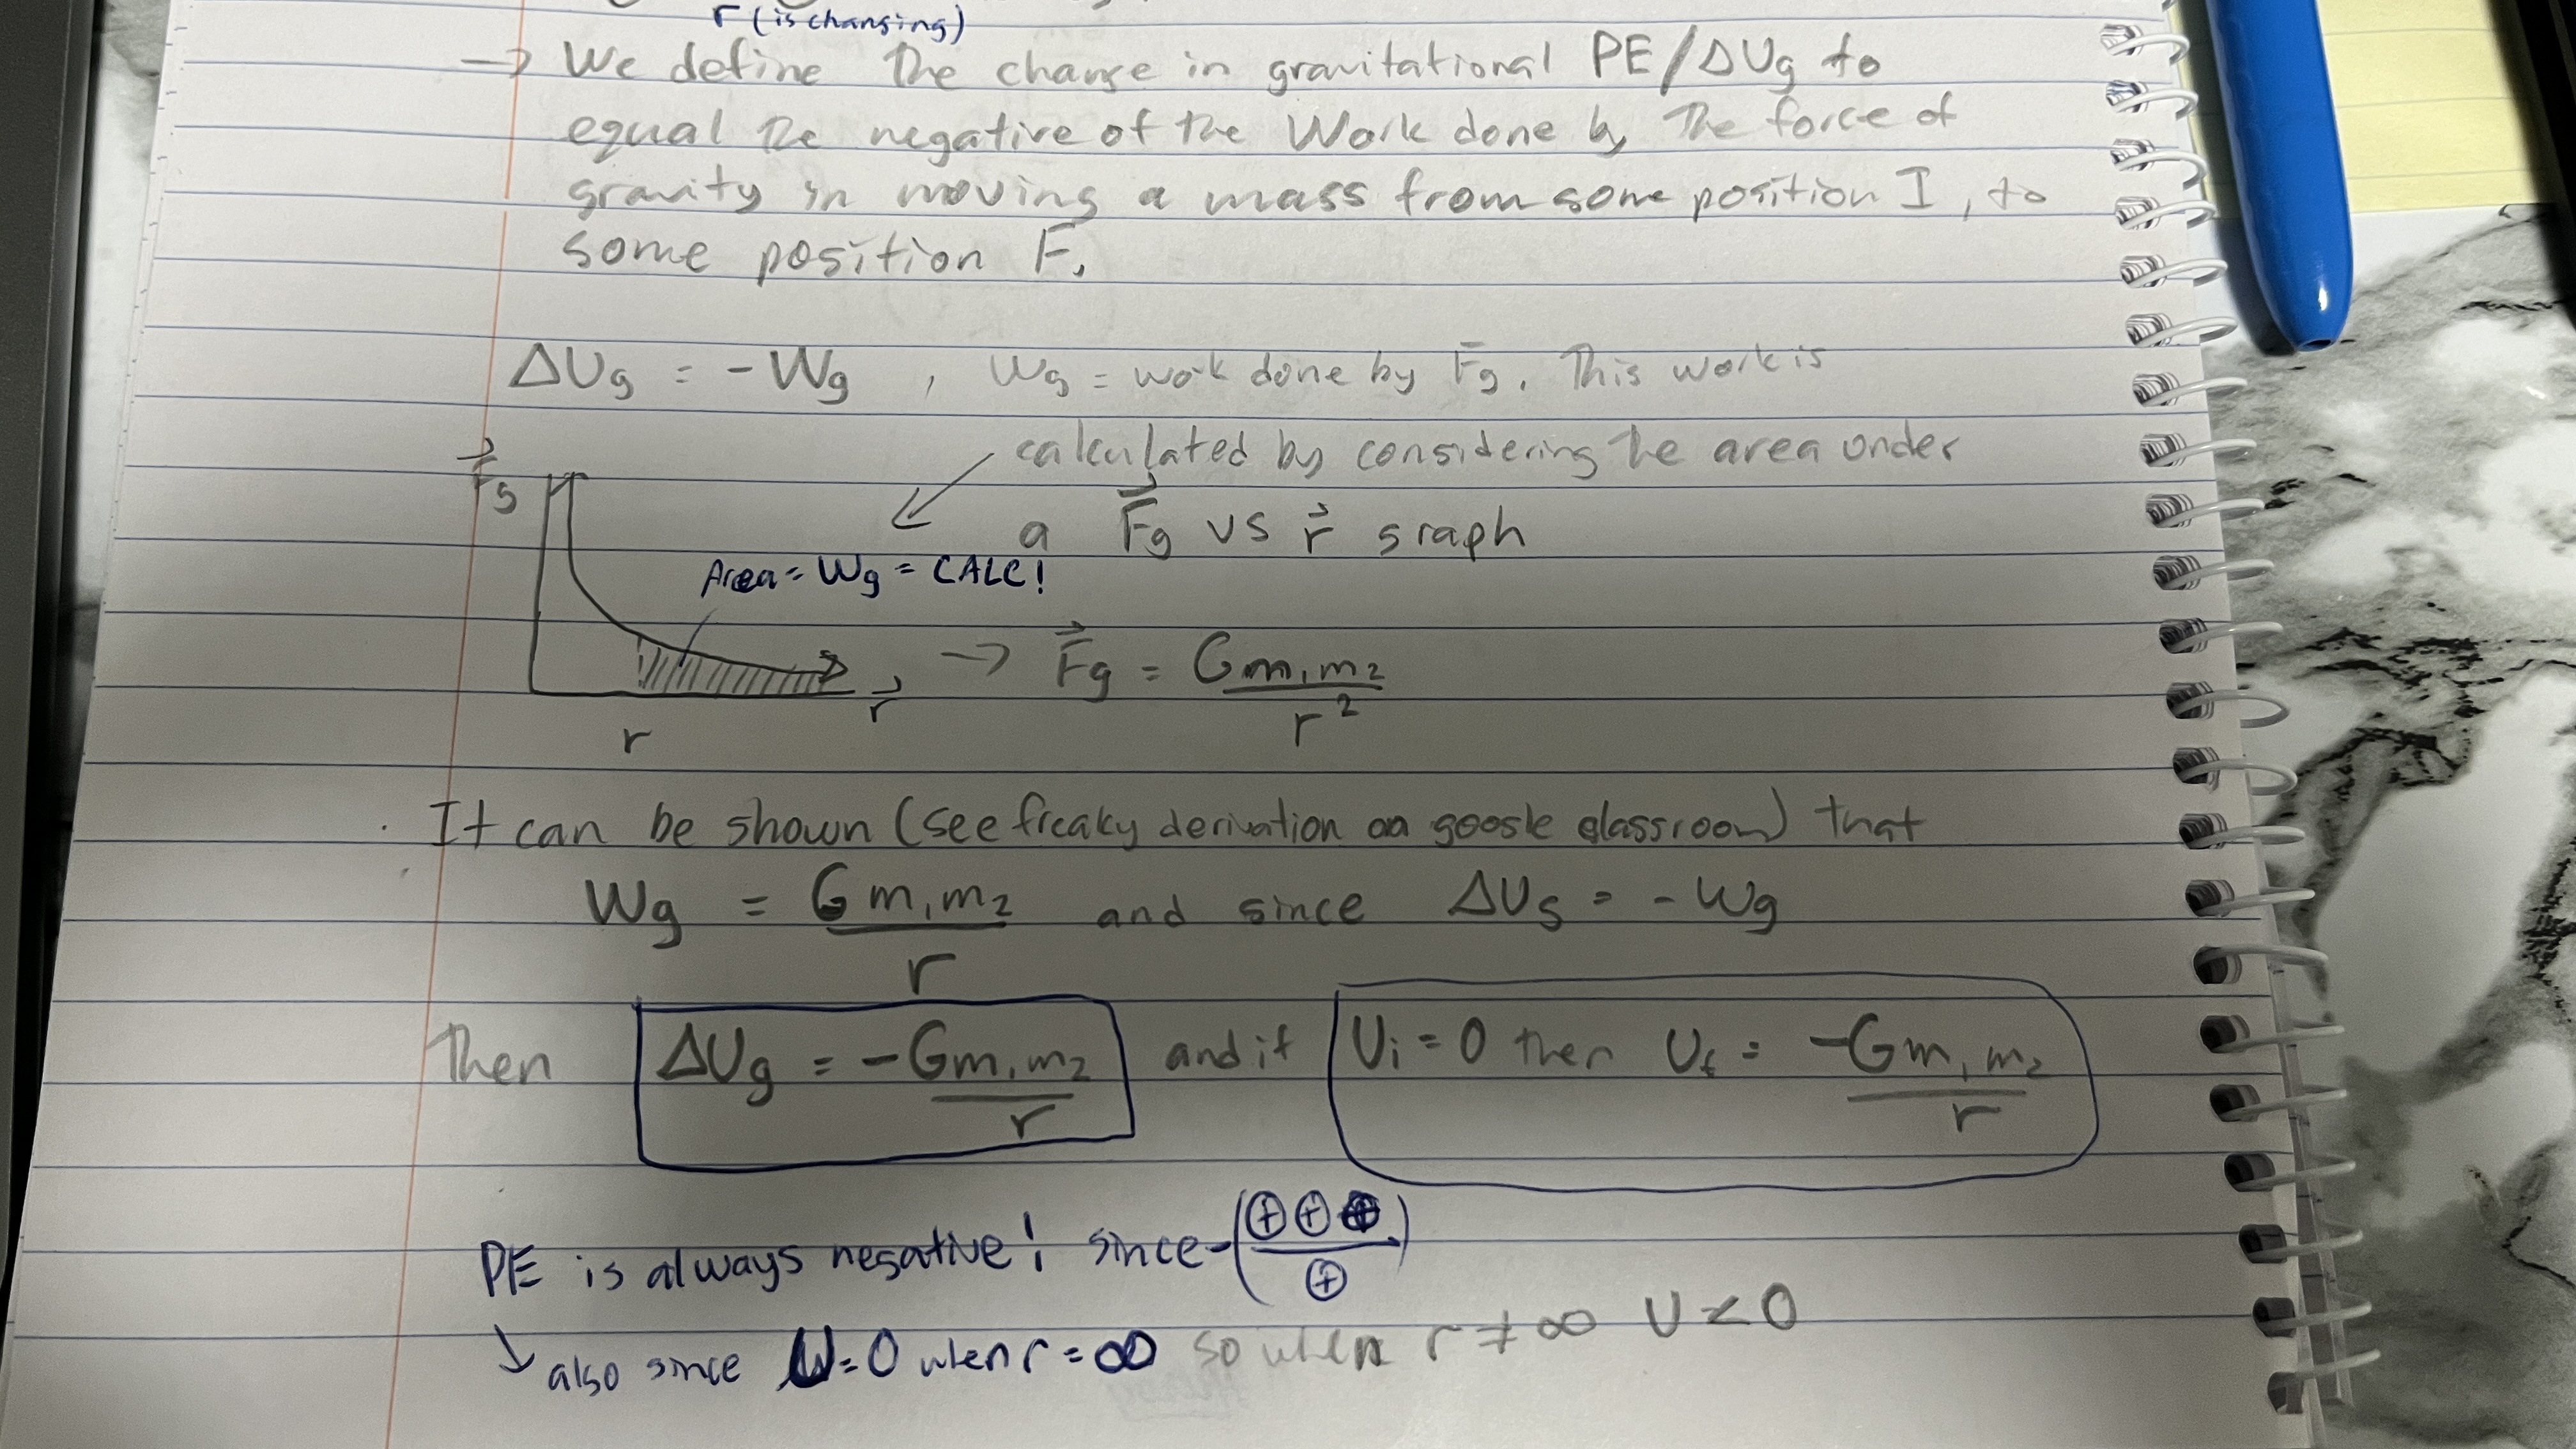 r (is changing)
→ We define the change in gravitational PE/ΔUg to
equal the negative of the Work done by the force of
gravity in moving a mass from some position I, to
some position F.
ΔUg = -Wg , Wg = work done by Fg. This work is
calculated by considering the area under
a Fg vs r graph
Fg
Area = Wg = CALC!
→ Fg = Gm₁m₂
r²
r
r
It can be shown (see freaky derivation on google classroom) that
Wg = Gm₁m₂ and since ΔUg = -Wg
r
Then ΔUg = -Gm₁m₂ and if Ui = 0 then Uf = -Gm₁m₂
r r
PE is always negative! since -(⊕⊕
⊕)
↳ also since U=0 when r=∞ so when r≠∞ U<0